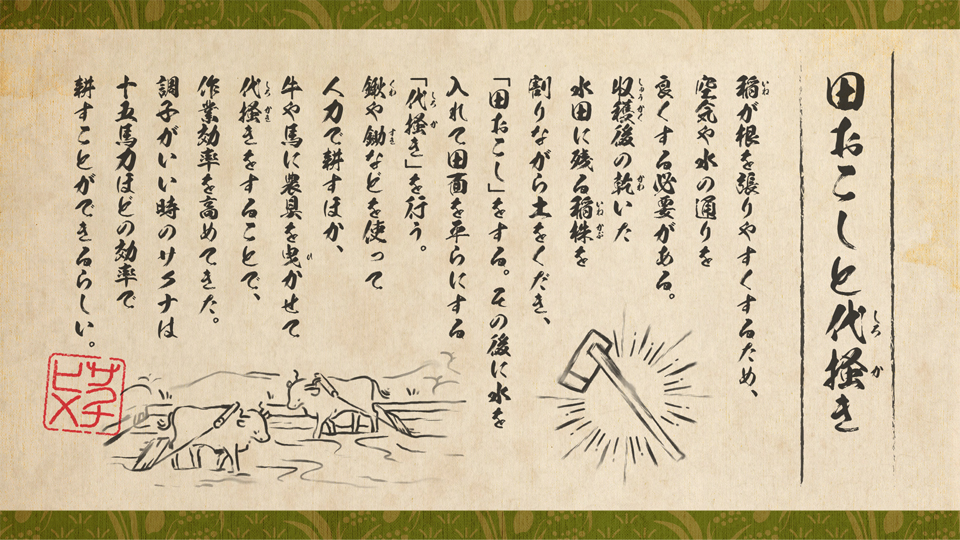 田おこしと代掻き
稲が根を張りやすくするため、
空気や水の通りを
良くする必要がある。
収穫後の乾いた
水田に残る稲株を
割りながら土をくだき、
「田おこし」をする。その後に水を
入れて田面を平らにする
「代掻き」を行う。
鍬や鋤などを使って
人力で耕すほか、
牛や馬に農具を曳かせて
代掻きをすることで、
作業効率を高めてきた。
調子がいい時のサクナは
十五馬力ほどの効率で
耕すことができるらしい。
サクナ
ヒメ